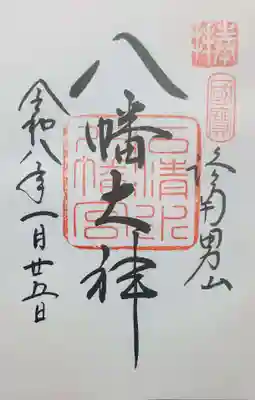 奉拝
國寶
洛南男山
八幡大神
石清水八幡宮
令和八年一月廿五日